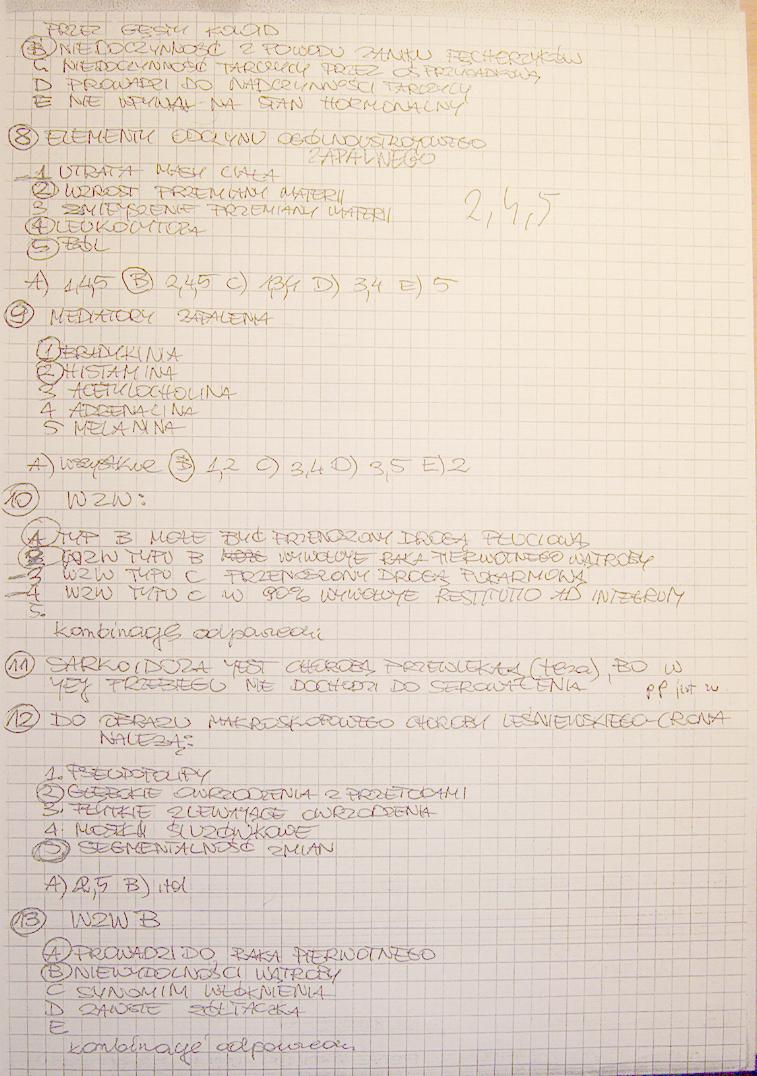 PRZEZ GĘSTY KOLOID
B NIEDOCZYNNOŚĆ Z POWODU ZANIKU PĘCHERZYKÓW
C NIEDOCZYNNOŚĆ TARCZYCY PRZEZ OŚ PRZYSADKOWĄ
D PROWADZI DO NADCZYNNOŚCI TARCZYCY
E NIE WPŁYWA NA STAN HORMONALNY
8 ELEMENTY ODCZYNU OGÓLNOUSTROJOWEGO
ZAPALNEGO
1 UTRATA MASY CIAŁA
2 WZROST PRZEMIANY MATERII
3 ZMIEJSZENIE PRZEMIANY MATERII
2,4,5
4 LEUKOCYTOZA
5 BÓL
A) 1,4,5 B) 2,4,5 C) 1,3,4 D) 3,4 E) 5
9 MEDIATORY ZAPALENIA
1 BRADYKINIA
2 HISTAMINA
3 ACETYLOCHOLINA
4 ADRENALINA
5 MELANINA
A) wszystkie B) 1,2 C) 3,4 D) 3,5 E) 2
10 WZW:
1 TYP B MOŻE BYĆ PRZENOSZONY DROGĄ PŁCIOWĄ
2 WZW TYPU B WYWOŁUJE RAKA PIERWOTNEGO WĄTROBY
3 WZW TYPU C PRZENOSZONY DROGĄ POKARMOWĄ
4 WZW TYPU C W 90% WYWOŁUJE RESTITUTIO AD INTEGRUM
5.
kombinacje odpowiedzi
11 SARKOIDOZA JEST CHOROBĄ PRZEWLEKŁĄ (teza), BO W
JEJ PRZEBIEGU NIE DOCHODZI DO SEROWACENIA
12 DO OBRAZU MAKROSKOPOWEGO CHOROBY LEŚNIEWSKIEGO-CRONA
NALEŻĄ:
1. PSEUDOPOLIPY
2 GŁĘBOKIE OWRZODZENIA Z PRZETOKAMI
3. PŁYTKIE ZLEWAJĄCE OWRZODZENIA
4. MOSTKI ŚLUZÓWKOWE
5 SEGMENTALNOŚĆ ZMIAN
A) 2,5 B) itd
13 WZW B
A PROWADZI DO RAKA PIERWOTNEGO
B NIEWYDOLNOŚCI WĄTROBY
C SYNONIM WŁÓKNIENIA
D ZAWSZE ŻÓŁTACZKA
E
kombinacje odpowiedzi